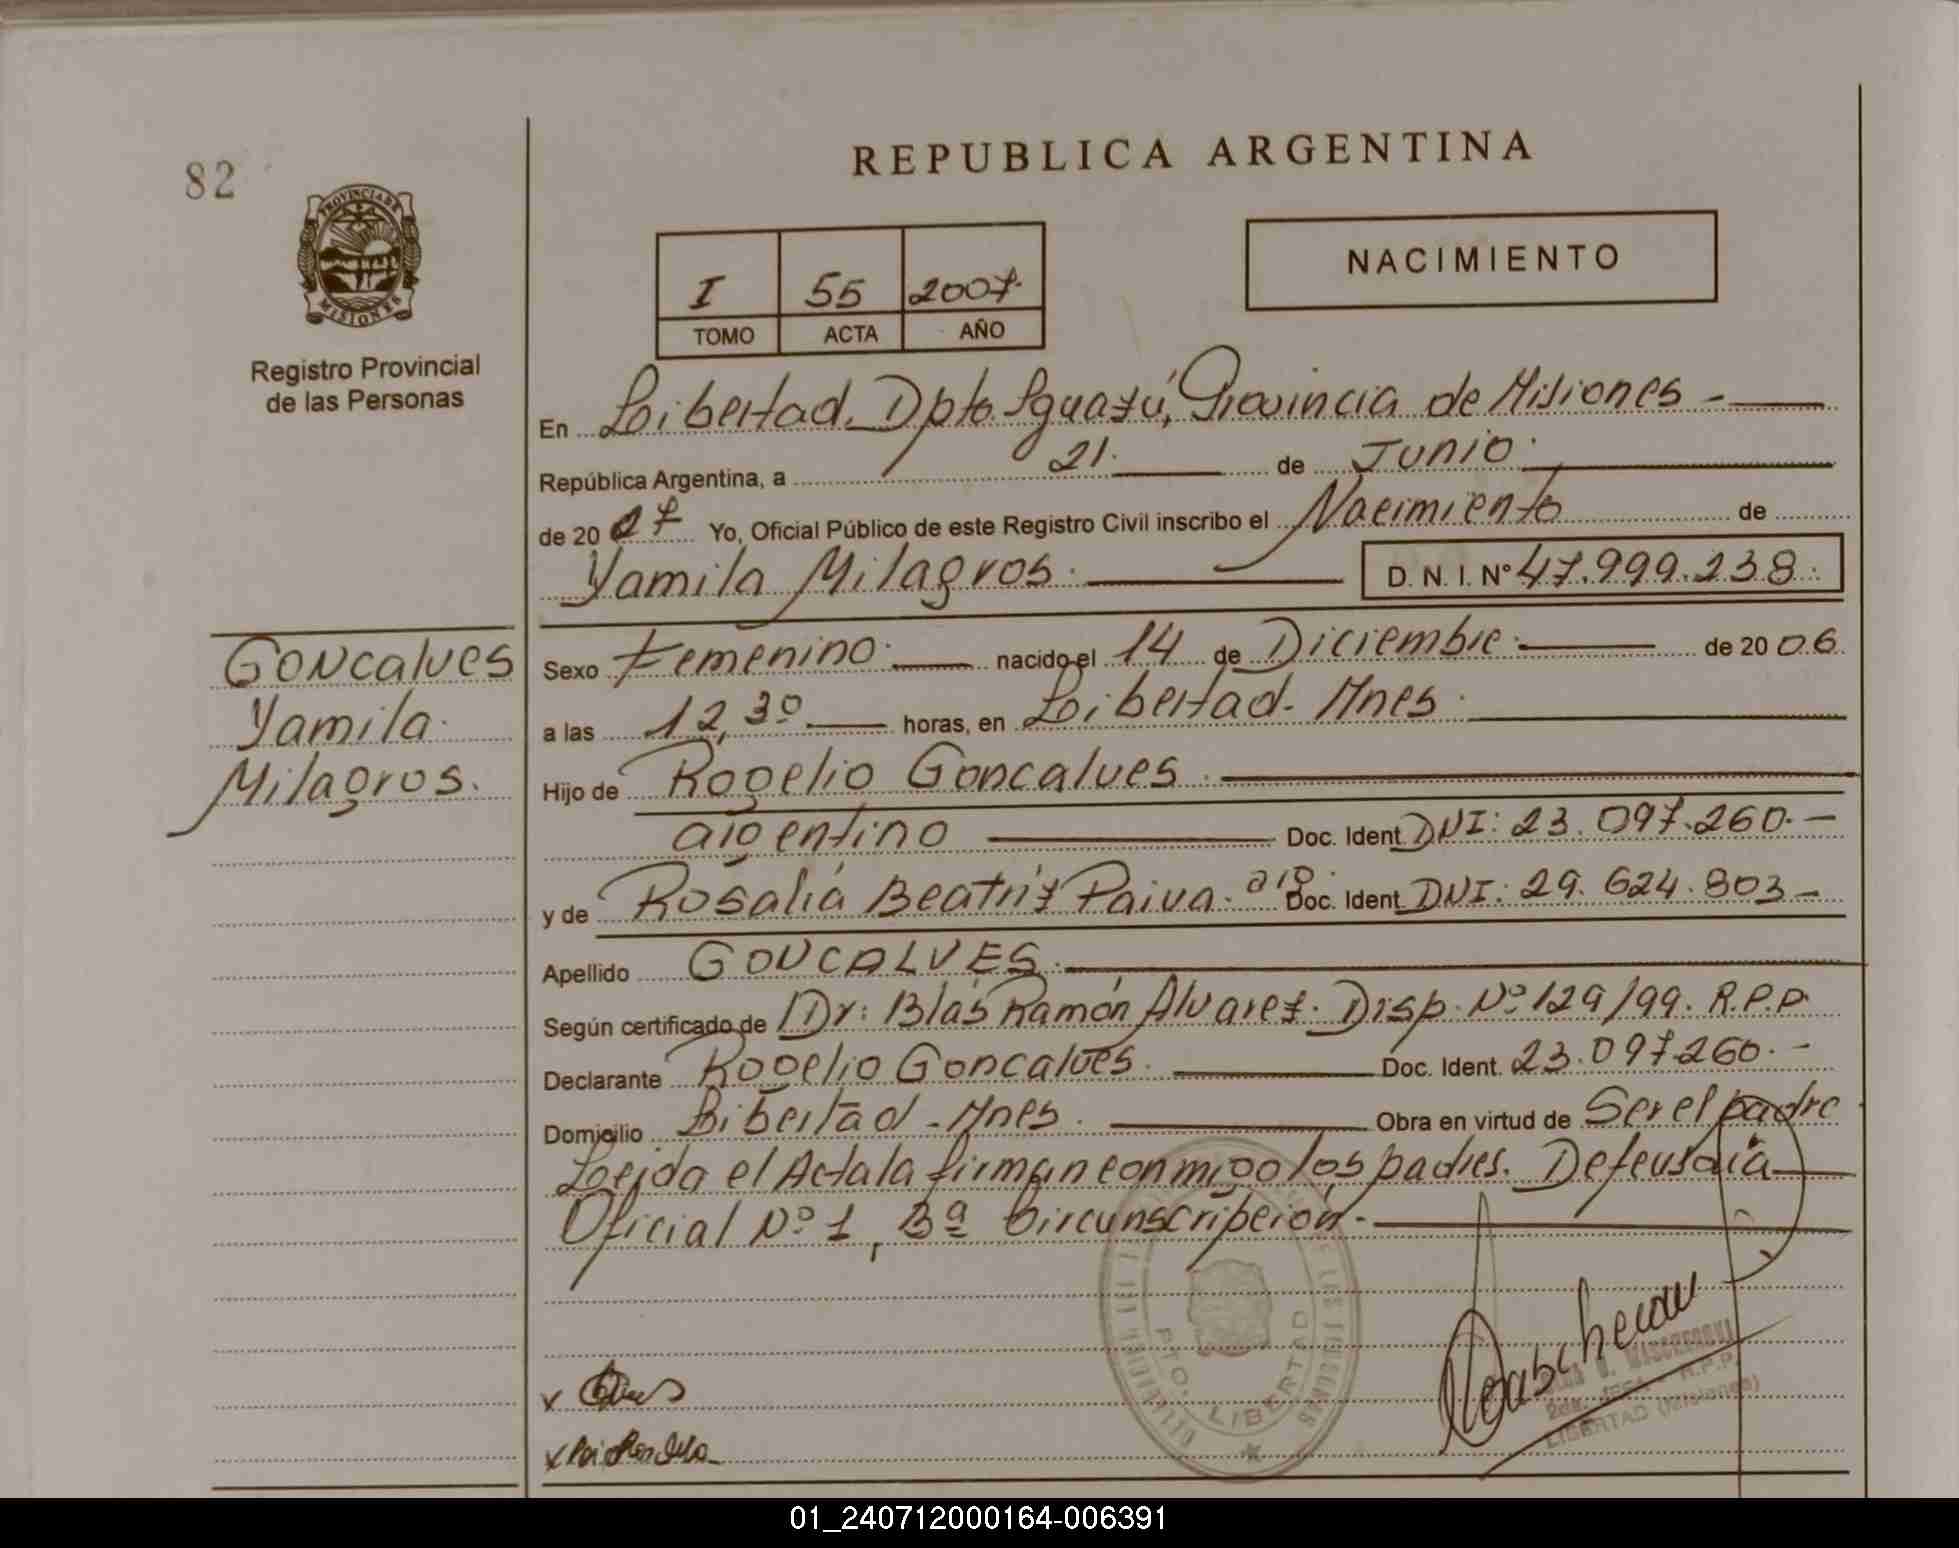 82
REPUBLICA ARGENTINA
PROVINCIA DE
MISIONES
Registro Provincial
de las Personas
I 55 2007.
TOMO ACTA AÑO
NACIMIENTO
En Libertad. Dpto. Iguazú, Provincia de Misiones -
República Argentina, a 21. de Junio.
de 2007 Yo, Oficial Público de este Registro Civil inscribo el Nacimiento de
Yamila Milagros. D. N. I. Nº 47.999.238.
Goncalves
Yamila.
Milagros.
Sexo Femenino. nacido el 14 de Diciembre. de 2006.
a las 12,30 horas, en Libertad. Mnes.
Hijo de Rogelio Goncalves.
argentino Doc. Ident. DNI: 23.097.260.-
y de Rosalia Beatriz Paiva. arg. Doc. Ident. DNI: 29.624.803-
Apellido GONCALVES.
Según certificado de Dr: Blás Ramón Alvarez. Disp. Nº 129/99. R.P.P.
Declarante Rogelio Goncalves. Doc. Ident. 23.097.260.-
Domicilio Libertad - Mnes. Obra en virtud de Ser el padre
Leida el Acta la firman conmigo los padres. Defensoria
Oficial Nº 1, 3ª Circunscripción.-
PTO. LIBERTAD
2da. JEFA - R.P.P.
LIBERTAD (Misiones)
01_240712000164-006391